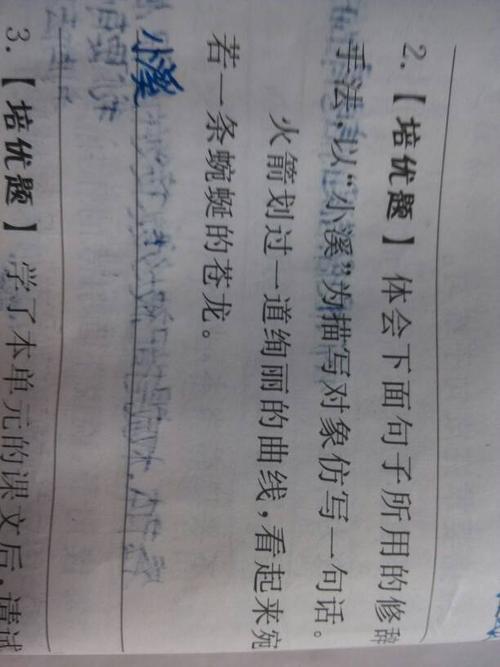 2.【培优题】体会下面句子所用的修辞
手法,以“小溪”为描写对象仿写一句话。
火箭划过一道绚丽的曲线,看起来宛
若一条蜿蜒的苍龙。
小溪
3.【培优题】学了本单元的课文后,请试